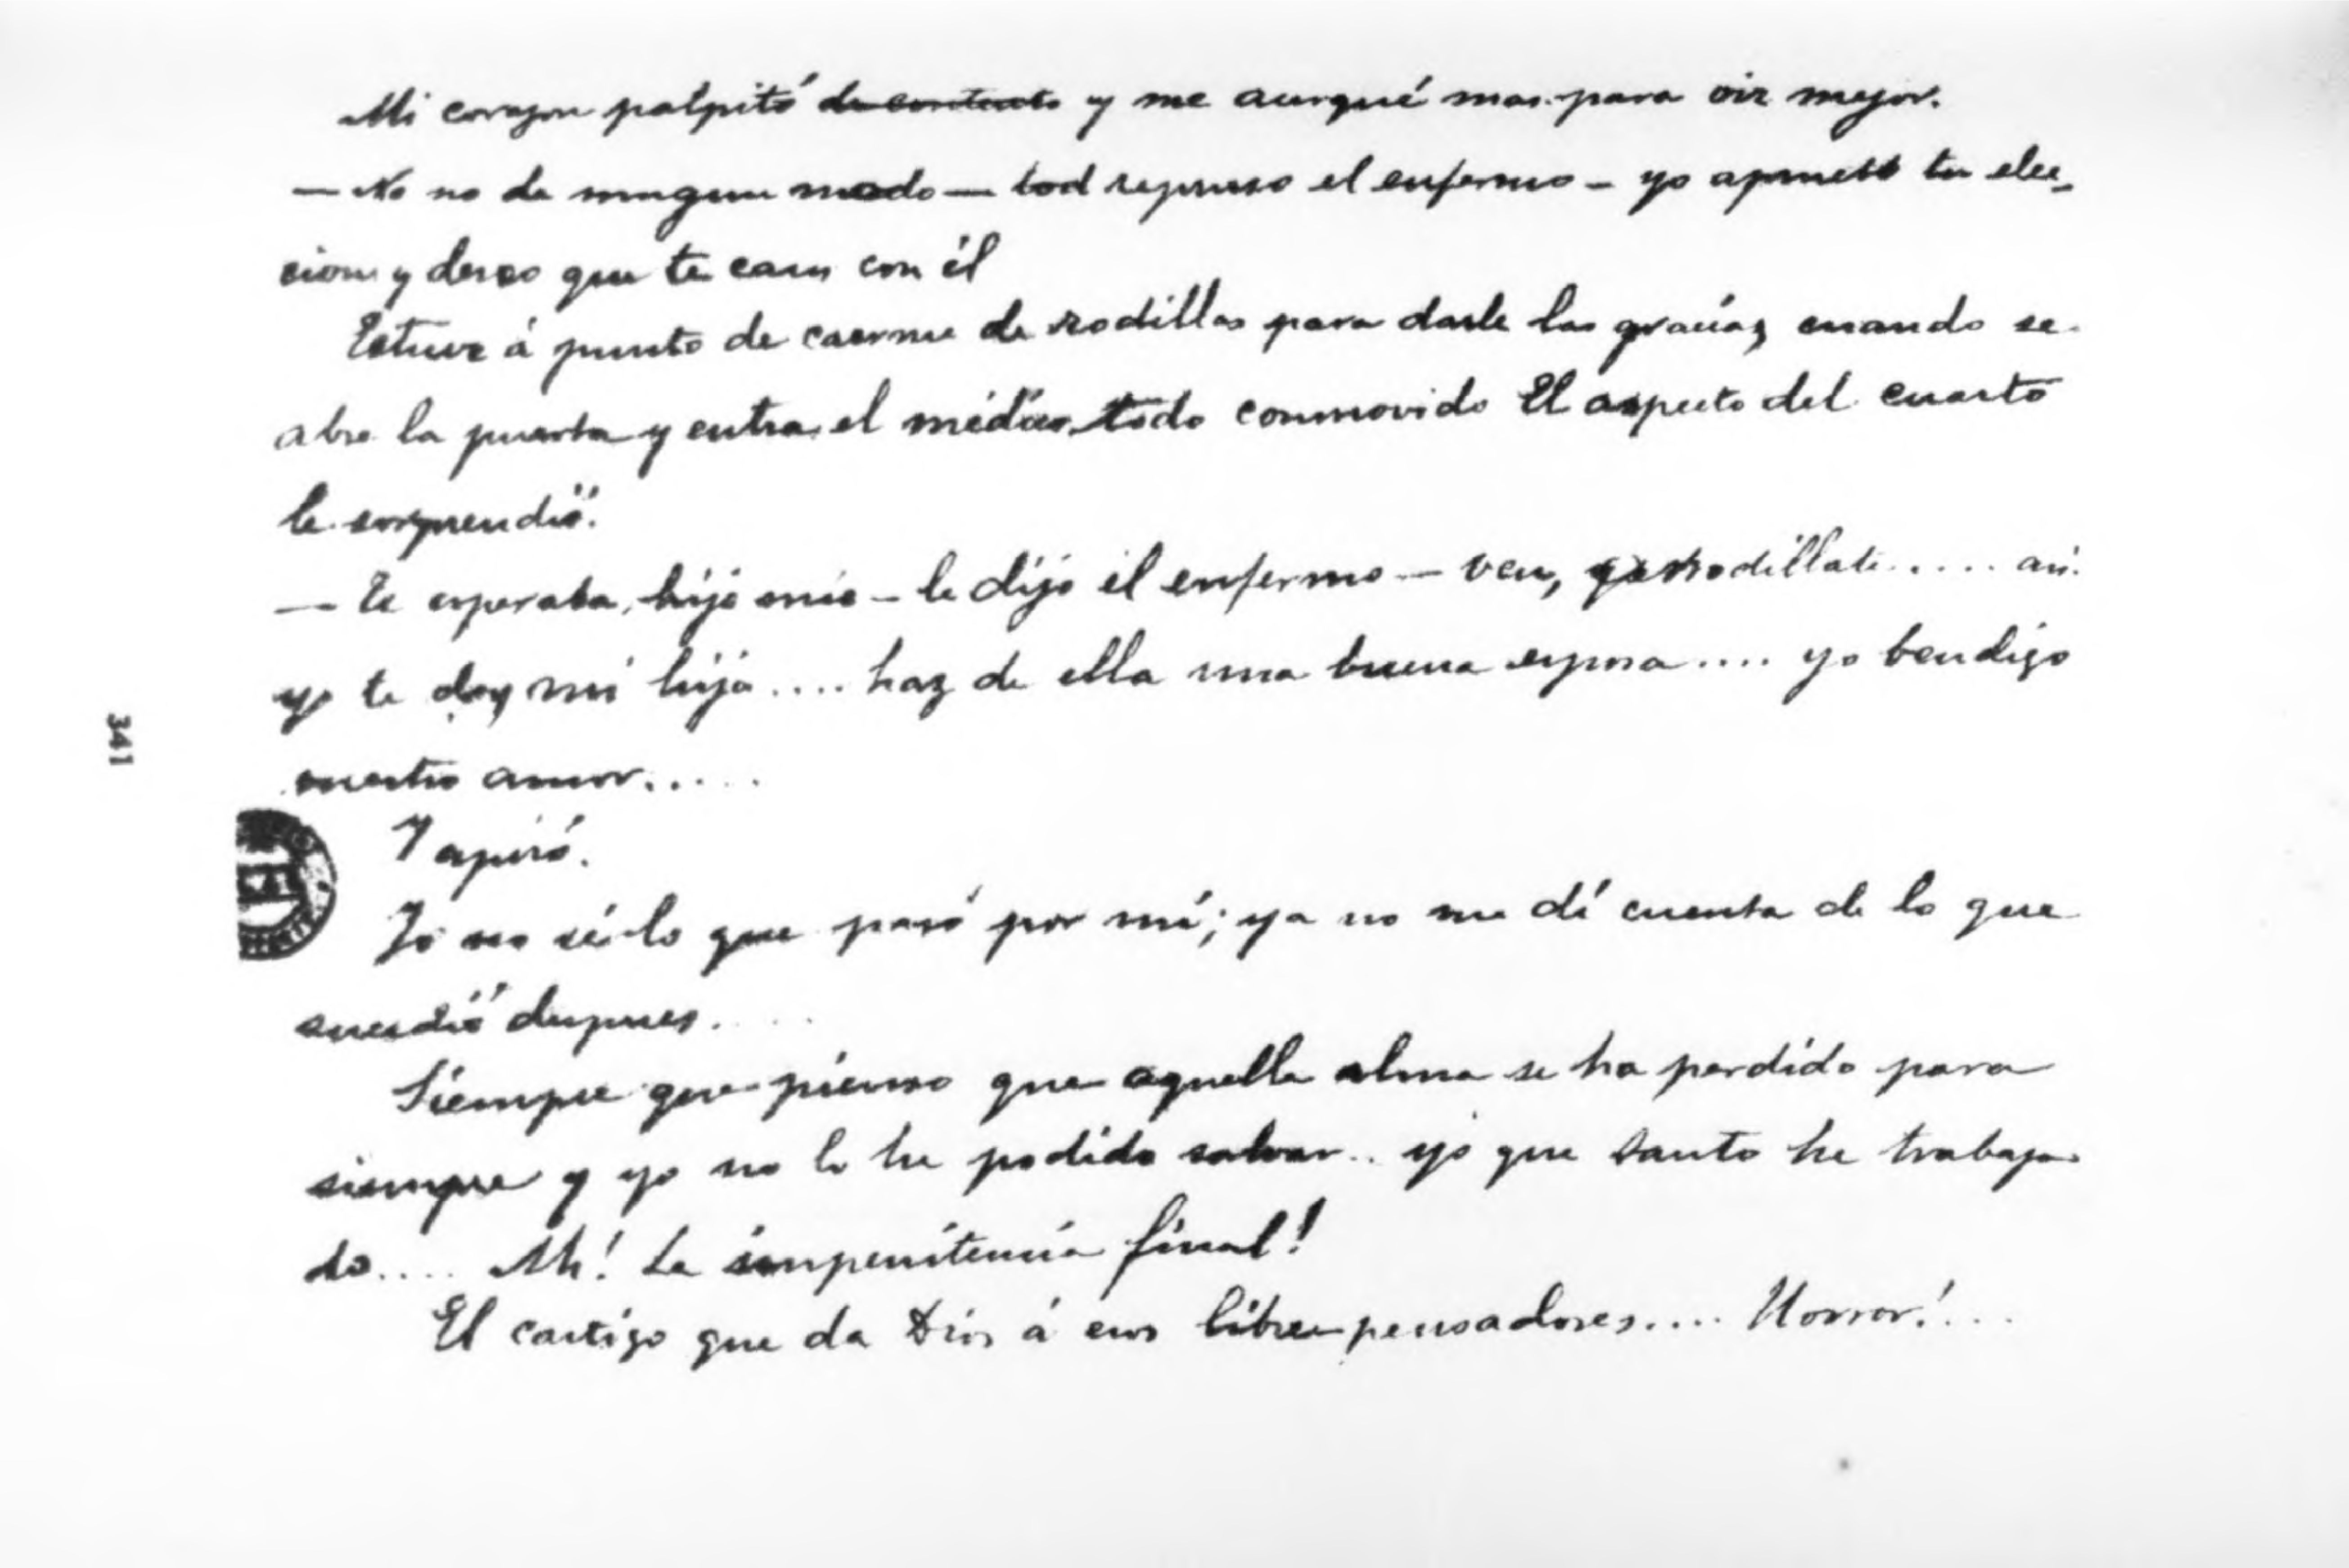 Mi corazon palpitó de contento y me acerqué mas para oir mejor.
— No no de ningun modo — tod repuso el enfermo — yo apruebo tu elec-
cion y deseo que te cases con él
Estuve á punto de caerme de rodillas para darle las gracias, cuando se
abre la puerta y entra el médico todo conmovido El aspecto del cuarto
le sorprendió.
— Te esperaba, hijo mio — le dijo el enfermo — ven, arrodillate..... asi.
yo te doy mi hija.... haz de ella una buena esposa.... yo bendigo
vuestro amor.....
Y espiró.
Yo no sé lo que pasó por mi; ya no me dí cuenta de lo que
sucedió despues.....
Siempre que pienso que aquella alma se ha perdido para
siempre y yo no la he podido salvar.. yo que tanto he trabaja-
do.... Ah! La impenitencia final!
El castigo que da Dios á esos libre-pensadores.... Horror!...
341